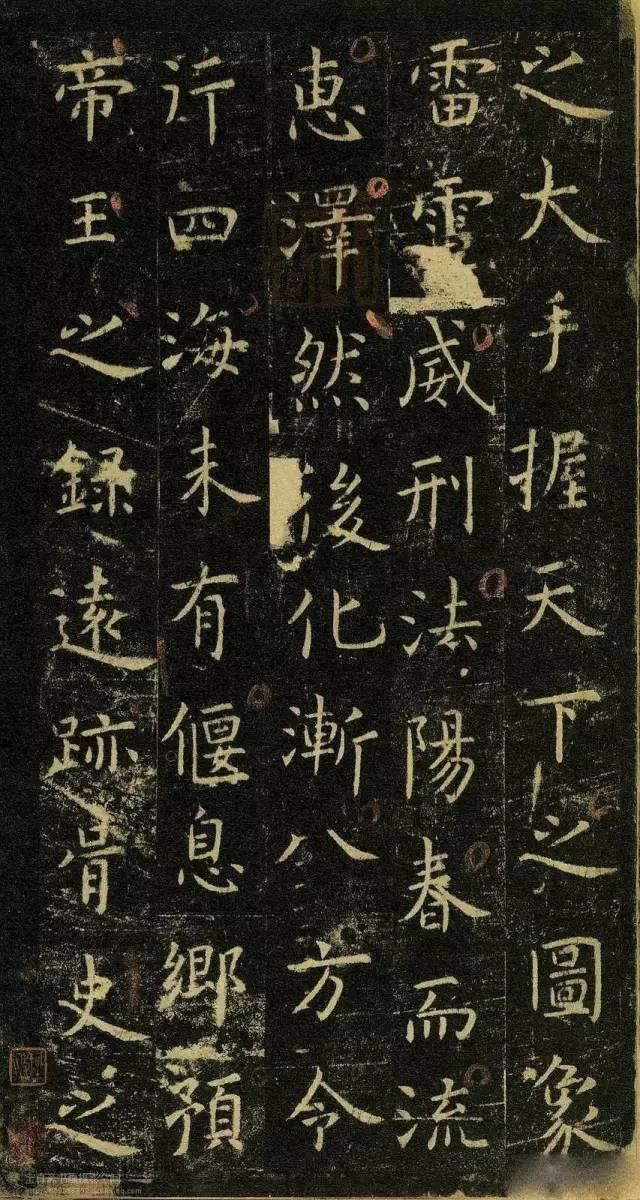 之大手握天下之圖象
雷電威刑法陽春而流
恵澤然後化漸八方令
行四海未有偃息鄉預
帝王之録遠跡胥史之